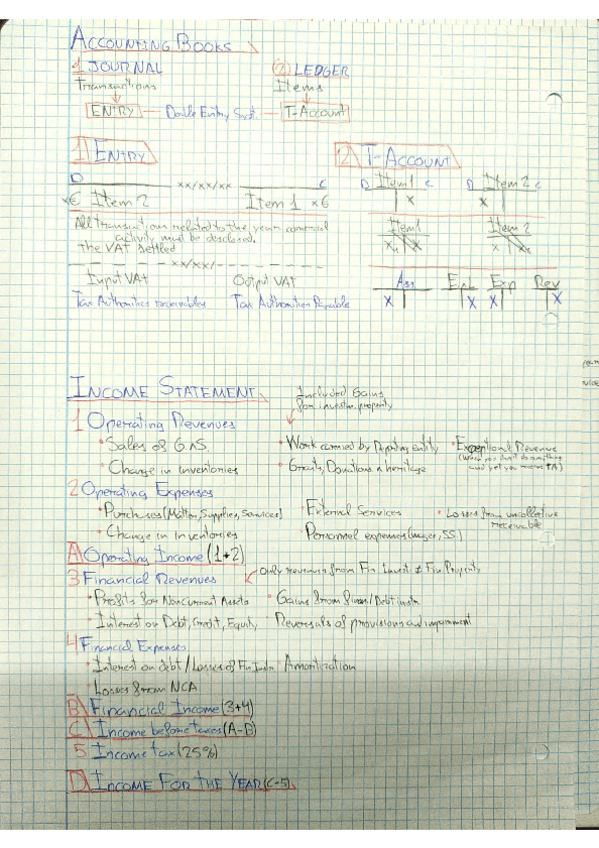 ACCOUNTING BOOKS
1 JOURNAL 2 LEDGER
Transactions Items
ENTRY Double Entry Syst. T-Account
1 ENTRY 2 T-ACCOUNT
D xx/xx/xx C D Item 1 C D Item 2 C
x€ Item 2 Item 1 x€ x x
All transactions related to the year comercial Item 1 Item 2
activity must be disclosed.
The VAT settled
xx/xx/
Input VAT Output VAT Ass Exp Rev
Tax Authorities receivables Tax Authorities Payable x x x x
INCOME STATEMENT
Included Gains
for investm. property
1 Operating Revenues
• Sales of GnS • Work carried by reporting entity • Exceptional Revenue
(When you don't do anything
and yet you receive
• Change in Inventories • Grants, Donations n heritage
2 Operating Expenses
• Purchases (Matter, Supplies, Services) • External Services • Losses from uncollective
receivable
• Change in Inventories • Personnel expenses (wages, SS)
A) Operating Income (1+2)
3 Financial Revenues Only revenues from Fin. Invest ≠ Fin Property
• Profits for Noncurrent Assets • Gains from Debt
• Interest on Debt, Credit, Equity, Reversals of provisions and impairment
4 Financial Expenses
• Interest on debt / Losses of Fin Amortization
• Losses from NCA
B) Financial Income (3+4)
C) Income before taxes (A-B)
5 Income tax (25%)
D) INCOME FOR THE YEAR (C-5)